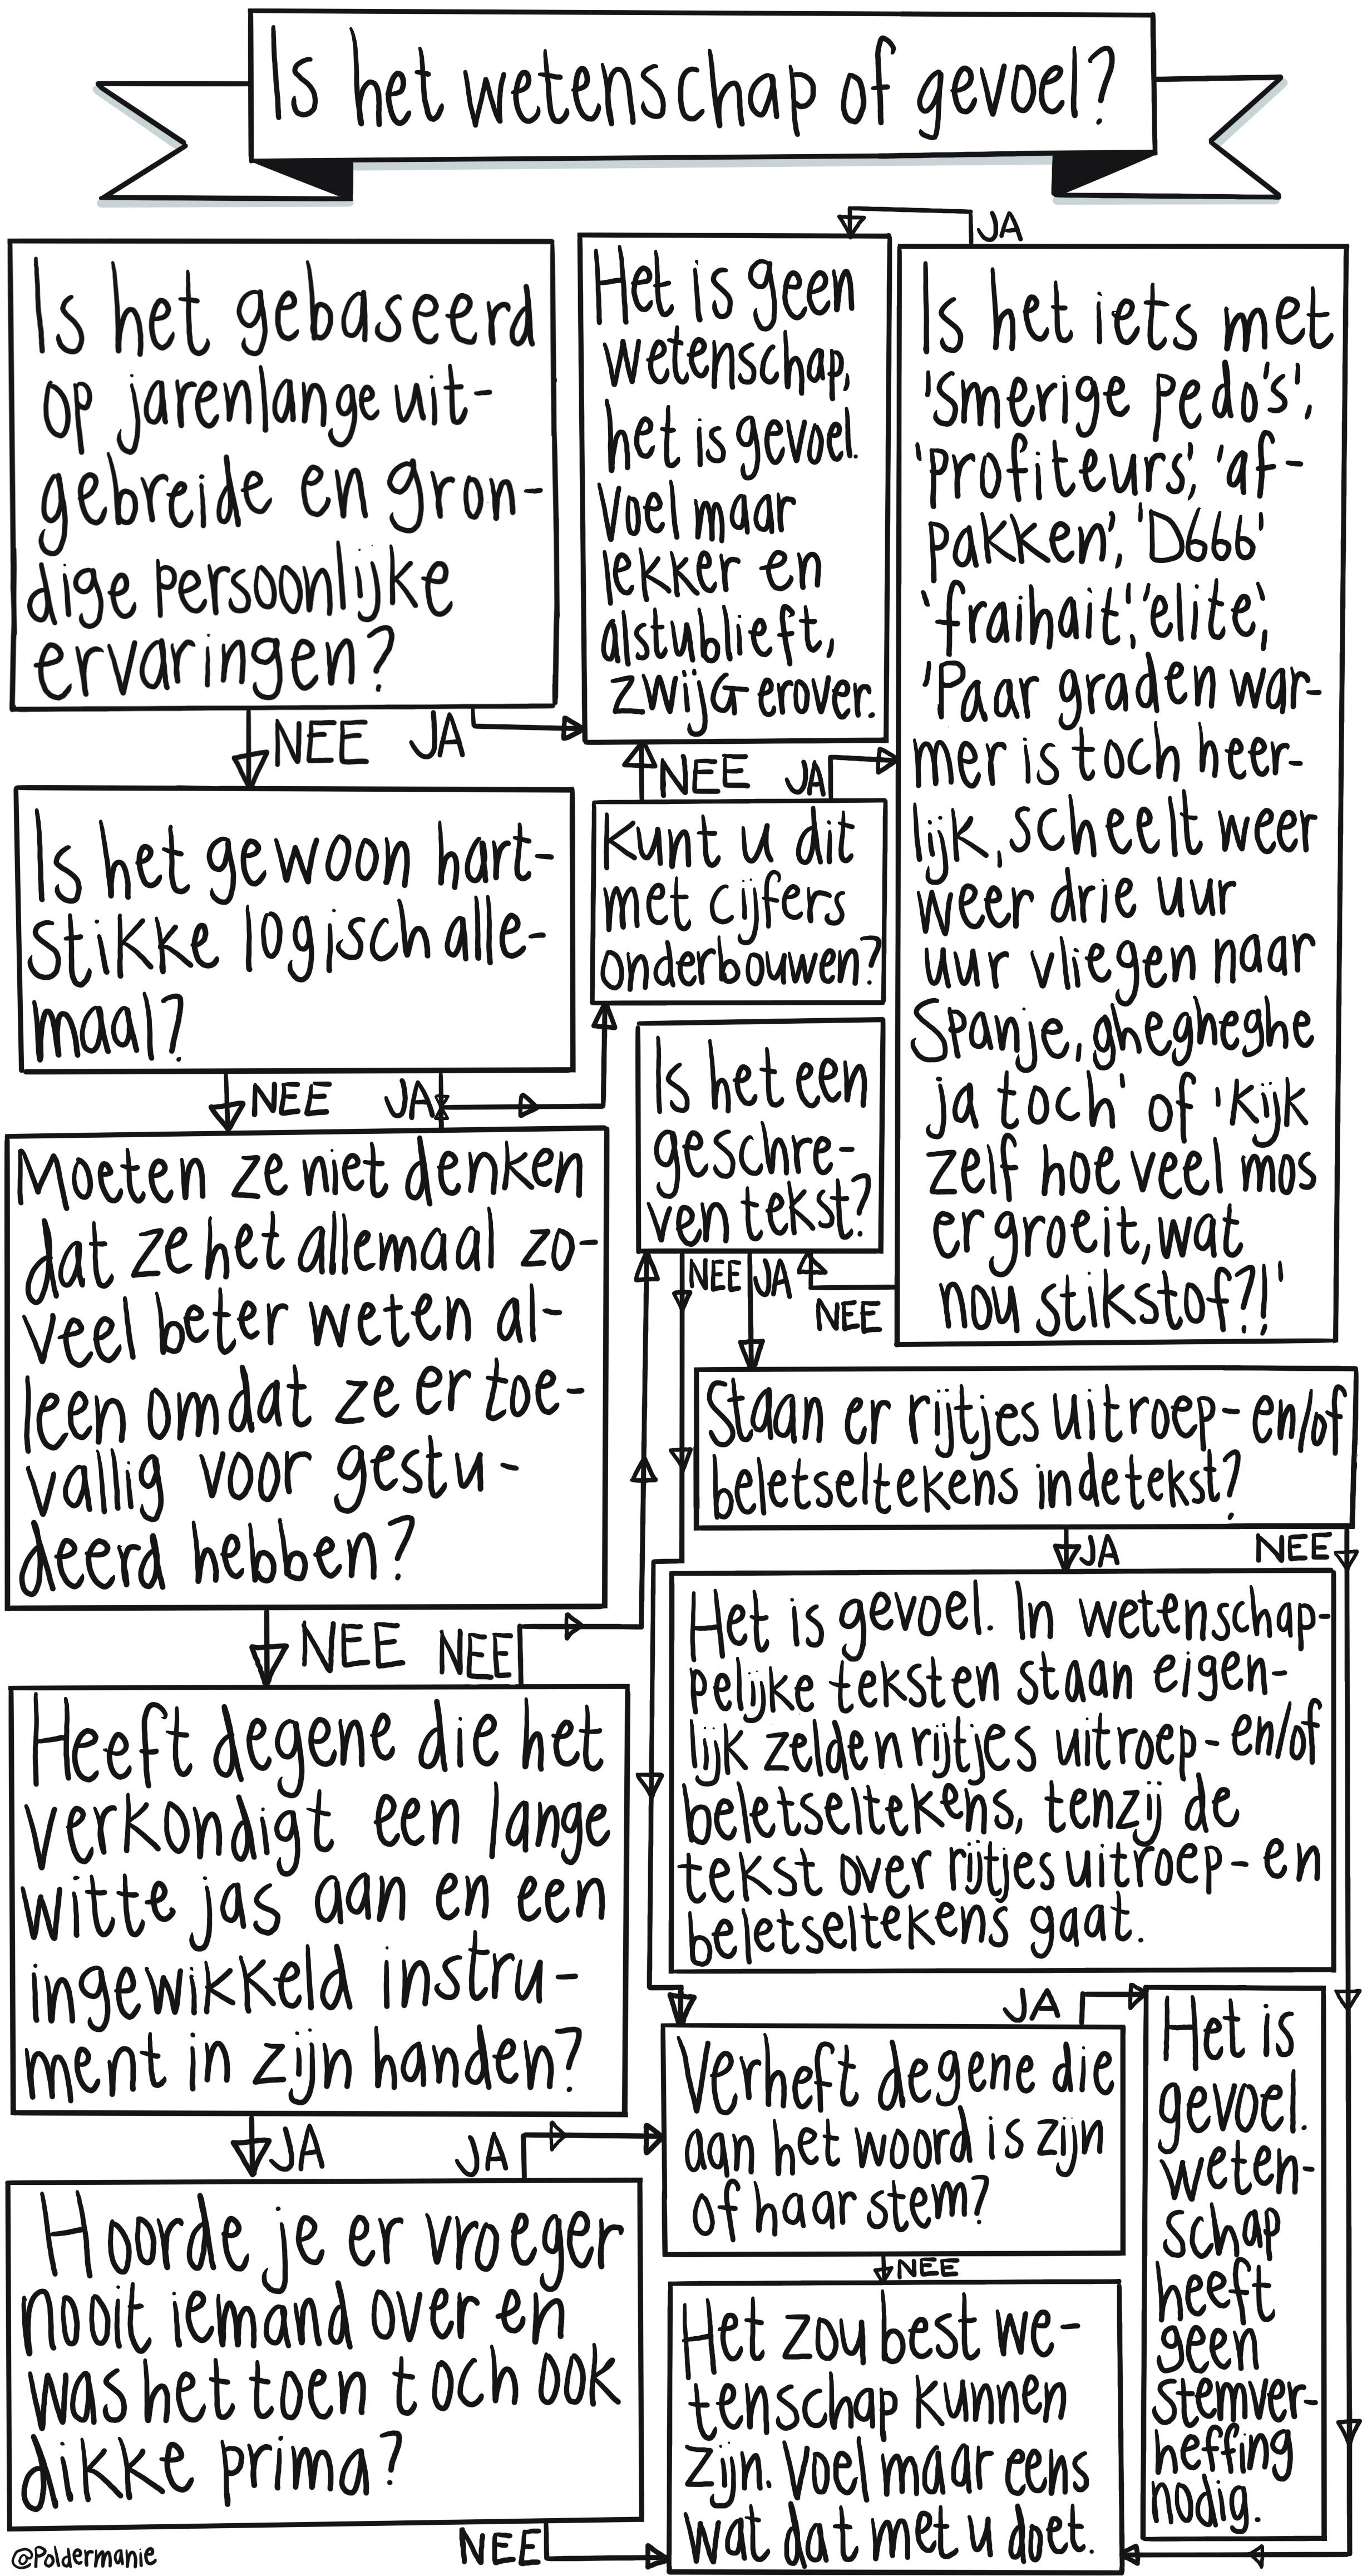 Is het wetenschap of gevoel?
Is het gebaseerd
op jarenlange uit-
gebreide en gron-
dige persoonlijke
ervaringen?
NEE
JA
Is het gewoon hart-
stikke logisch alle-
maal?
NEE
JA
Moeten ze niet denken
dat ze het allemaal zo-
veel beter weten al-
leen omdat ze er toe-
vallig voor gestu-
deerd hebben?
NEE
NEE
Heeft degene die het
verkondigt een lange
witte jas aan en een
ingewikkeld instru-
ment in zijn handen?
JA
JA
Hoorde je er vroeger
nooit iemand over en
was het toen toch ook
dikke prima?
NEE
@Poldermanie
Het is geen
wetenschap,
het is gevoel.
Voel maar
lekker en
alstublieft,
zwijG erover.
NEE
JA
Kunt u dit
met cijfers
onderbouwen?
Is het een
geschre-
ven tekst?
NEE
JA
NEE
JA
Is het iets met
'Smerige pedo's',
'profiteurs', 'af-
pakken', 'D666'
'fraihait', 'elite',
'Paar graden war-
mer is toch heer-
lijk, scheelt weer
weer drie uur
uur vliegen naar
Spanje, ghegheghe
ja toch' of 'Kijk
zelf hoeveel mos
er groeit, wat
nou stikstof?!'
Staan er rijtjes uitroep- en/of
beletseltekens in de tekst?
JA
NEE
Het is gevoel. In wetenschap-
pelijke teksten staan eigen-
lijk zelden rijtjes uitroep- en/of
beletseltekens, tenzij de
tekst over rijtjes uitroep- en
beletseltekens gaat.
JA
Verheft degene die
aan het woord is zijn
of haar stem?
NEE
Het zou best we-
tenschap kunnen
zijn. Voel maar eens
wat dat met u doet.
Het is
gevoel.
weten-
schap
heeft
geen
stemver-
heffing
nodig.